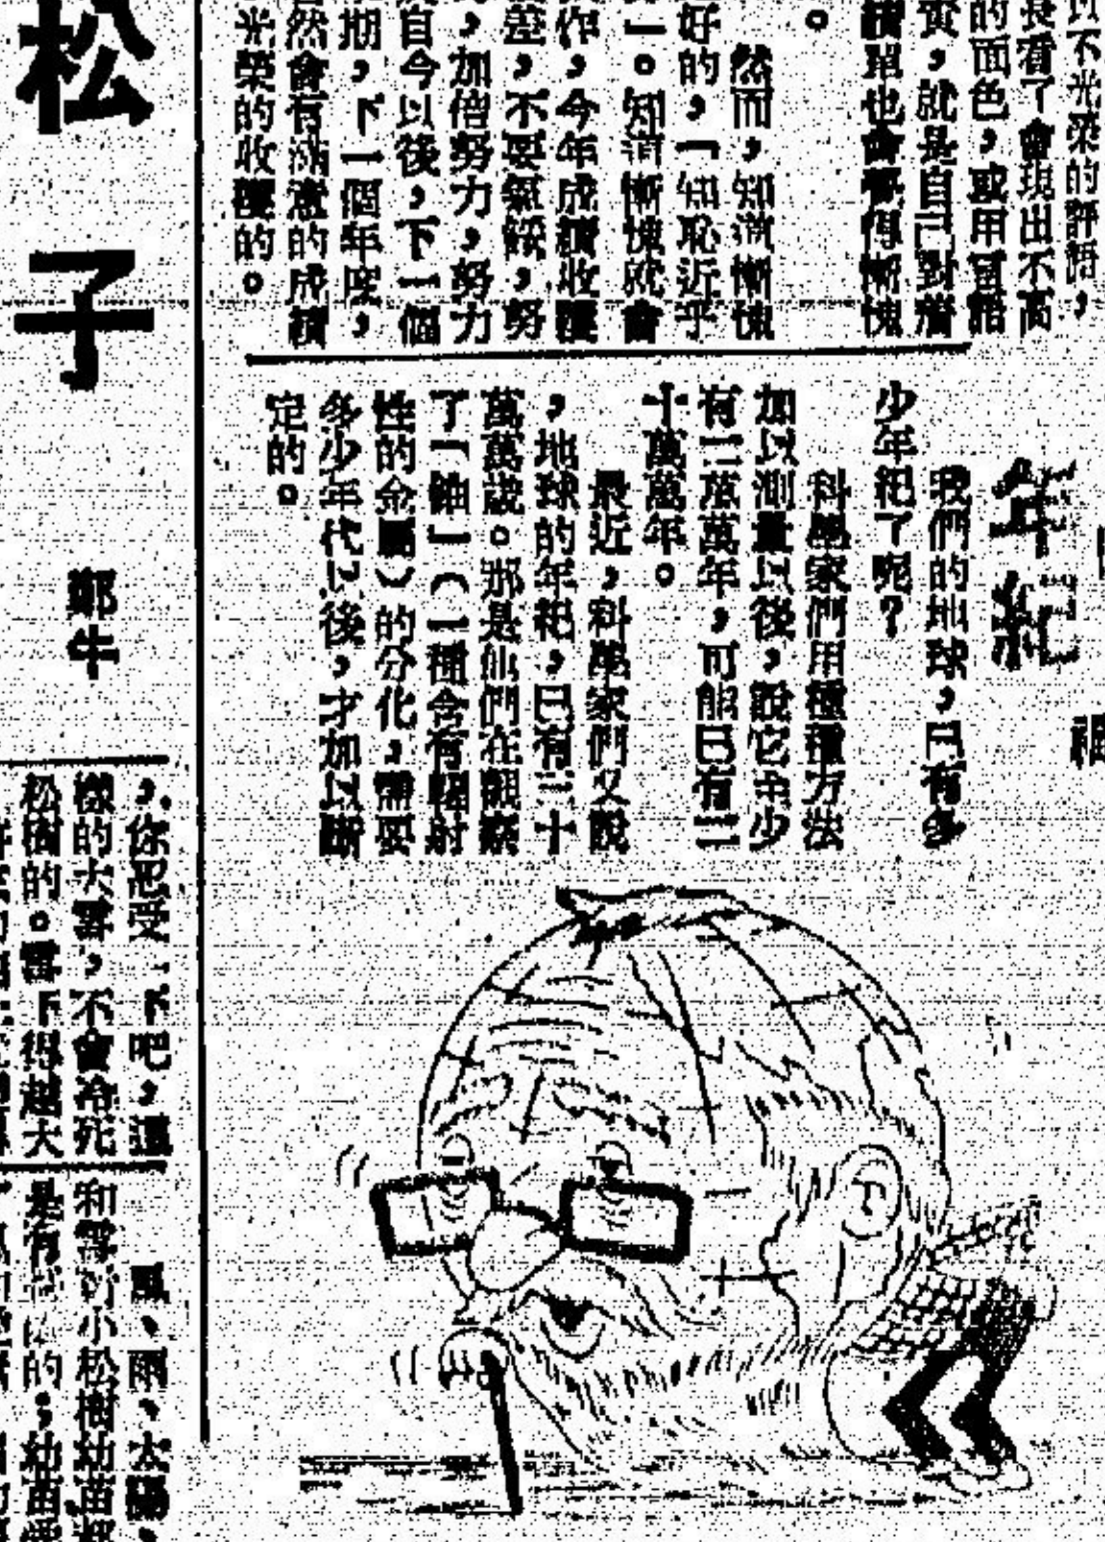 以不光榮的評語，
長看了會現出不高
的面色，或用語
責，就是自己對着
績單也會覺得慚愧
。
然而，知道慚愧
好的，「知恥近乎
一。知道慚愧就會
作，今年成績收穫
差，不要氣餒，努
，加倍努力，努力
自今以後，下一個
期，下一個年度，
然會有滿意的成績
光榮的收穫的。
年紀
我們的地球，已有多
少年紀了呢？
科學家們用種種方法
加以測量以後，說它至少
有二萬萬年，可能已有二
十萬萬年。
最近，科學家們又說
，地球的年紀，已有三十
萬萬歲。那是他們在觀察
了「鈾」（一種含有輻射
性的金屬）的分化，需要
多少年代以後，才加以斷
定的。
松子
鄭牛
，你忍受一下吧，這
樣的大雪，不會冷死
松樹的。雪下得越大
風、雨、太陽、
和雪對小松樹幼苗都
是有的，幼苗